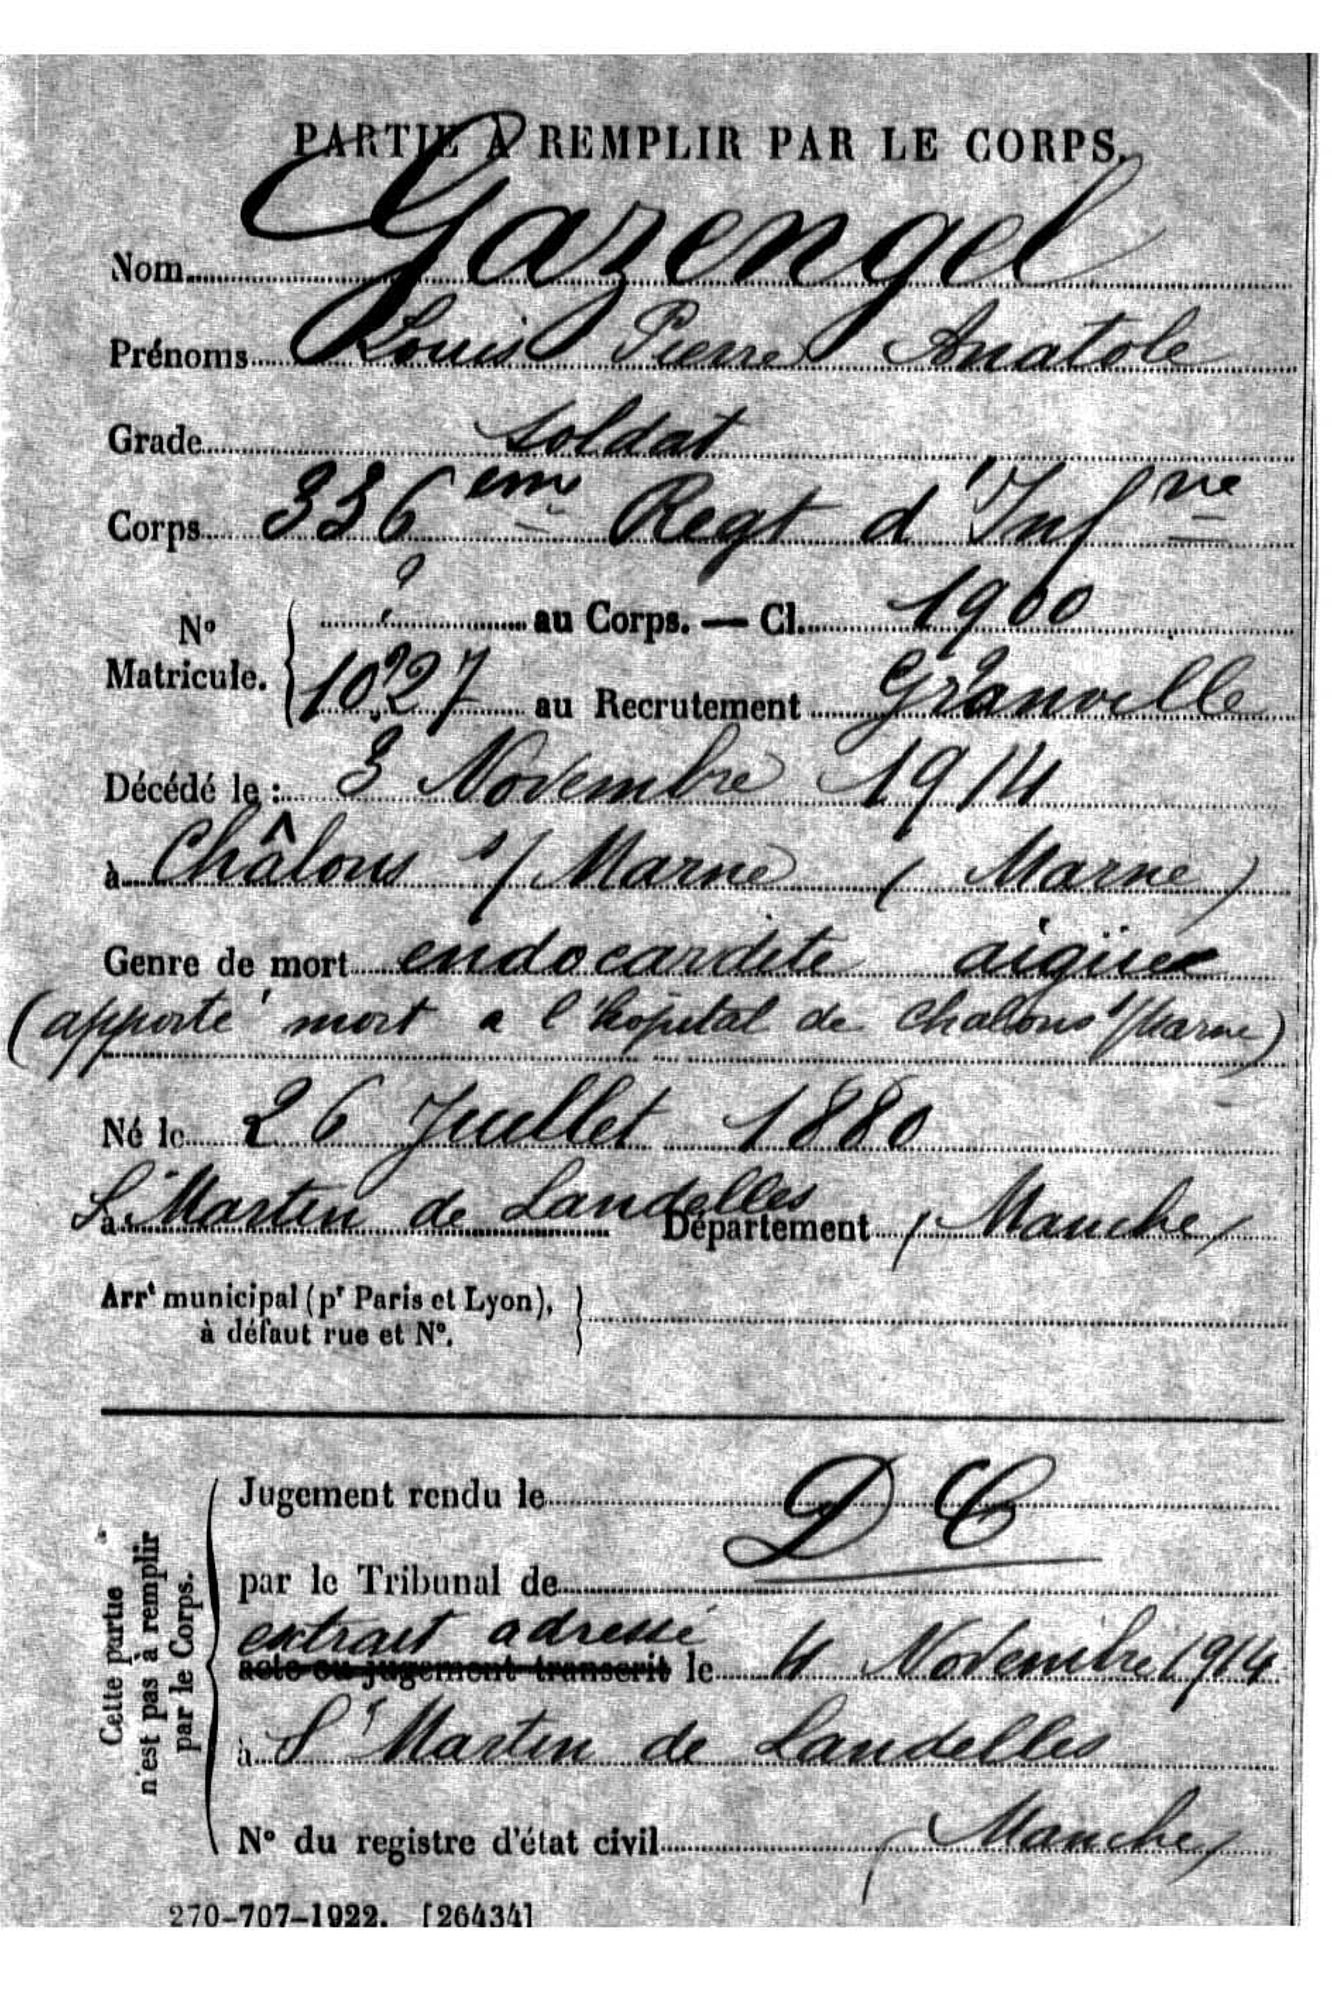 PARTIE À REMPLIR PAR LE CORPS.
Nom Gazengel
Prénoms Louis Pierre Anatole
Grade soldat
Corps 336 eme Regt d'Inf rie
N° Matricule. ? au Corps. — Cl. 1900
1027 au Recrutement Granville
Décédé le : 3 Novembre 1914
à Châlons s/ Marne (Marne)
Genre de mort endocardite aigüe
(apporté mort a l'hôpital de chalons s/Marne)
Né le 26 Juillet 1880
à St Martin de Landelles Département (Manche)
Arrt municipal (pr Paris et Lyon),
à défaut rue et N°.
Cette partie
n'est pas à remplir
par le Corps.
Jugement rendu le
D C
par le Tribunal de
extrait adressé
acte ou jugement transcrit le 4 Novembre 1914
à St Martin de Landelles
N° du registre d'état civil (Manche)
270-707-1922. [26434]